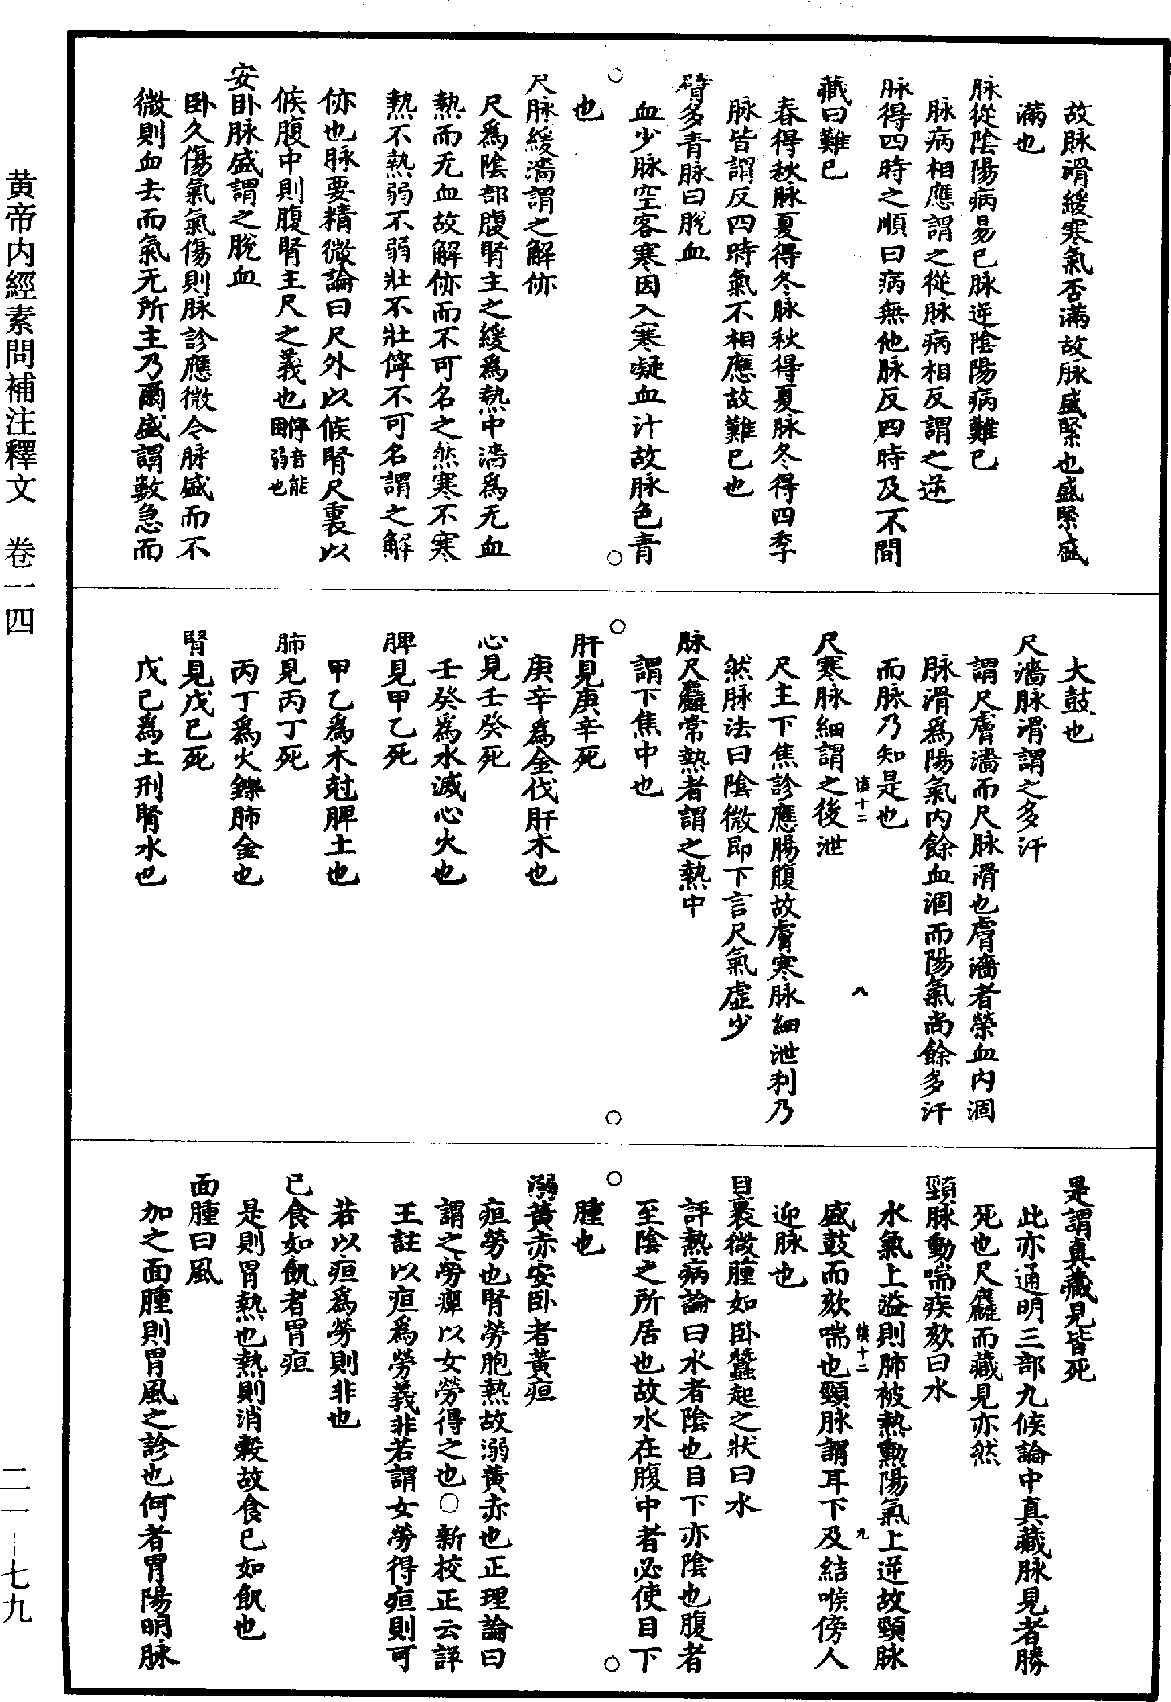 故脉滑緩寒氣否滿故脉盛緊也盛緊盛
滿也
脉從陰陽病易已脉逆陰陽病難已
脉病相應謂之從脉病相反謂之逆
脉得四時之順曰病無他脉反四時及不間
藏曰難已
春得秋脉夏得冬脉秋得夏脉冬得四季
脉皆謂反四時氣不相應故難已也
臂多青脉曰脫血
血少脉空客寒因入寒凝血汁故脉色青
也
尺脉緩濇謂之解㑊
尺爲陰部腹腎主之緩爲熱中濇爲无血
熱而无血故解㑊而不可名之然寒不寒
熱不熱弱不弱壯不壯儜不可名謂之解
㑊也脉要精微論曰尺外以候腎尺裏以
候腹中則腹腎主尺之義也儜音能
困弱也
安卧脉盛謂之脫血
卧久傷氣氣傷則脉診應微今脉盛而不
微則血去而氣无所主乃爾盛謂數急而
大鼓也
尺濇脉滑謂之多汗
謂尺膚濇而尺脉滑也膚濇者榮血内涸
脉滑爲陽氣内餘血涸而陽氣尚餘多汗
而脉乃知是也
尺寒脉細謂之後泄
尺主下焦診應腸腹故膚寒脉細泄利乃
然脉法曰陰微即下言尺氣虛少
脉尺麤常熱者謂之熱中
謂下焦中也
肝見庚辛死
庚辛爲金伐肝木也
心見壬癸死
壬癸爲水滅心火也
脾見甲乙死
甲乙爲木尅脾土也
肺見丙丁死
丙丁爲火鑠肺金也
腎見戊己死
戊己爲土刑腎水也
是謂真藏見皆死
此亦通明三部九候論中真藏脉見者勝
死也尺麤而藏見亦然
頸脉動喘疾欬曰水
水氣上溢則肺被熱勲陽氣上逆故頸脉
盛鼓而欬喘也頸脉謂耳下及結喉傍人
迎脉也
目裹微腫如卧蠶起之狀曰水
評熱病論曰水者陰也目下亦陰也腹者
至陰之所居也故水在腹中者必使目下
腫也
溺黃赤安卧者黃疸
疸勞也腎勞胞熱故溺黃赤也正理論曰
謂之勞癉以女勞得之也○新校正云詳
王註以疸爲勞義非若謂女勞得疸則可
若以疸爲勞則非也
已食如飢者胃疸
是則胃熱也熱則消穀故食已如飢也
面腫曰風
加之面腫則胃風之診也何者胃陽明脉
黃帝内經素問補注釋文　卷一四
二一—七九